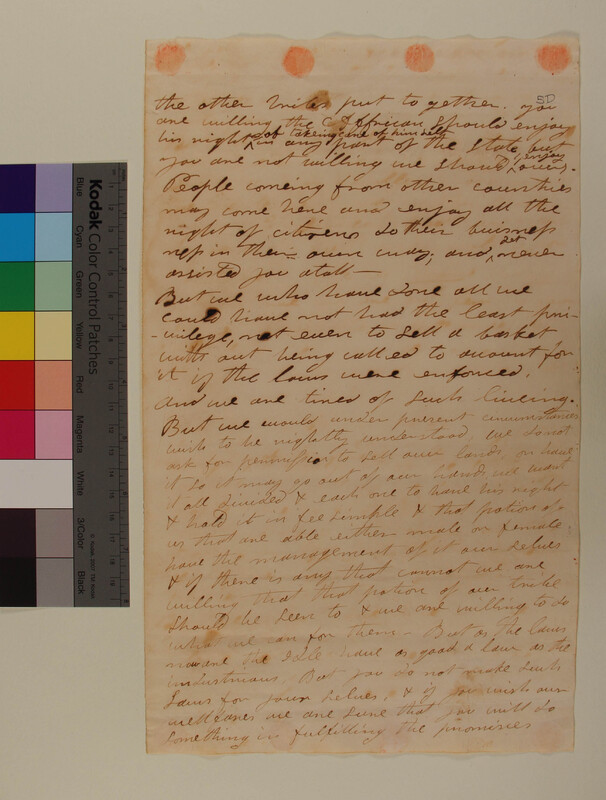 SD
the other tribes put to gether. you
are willing the C & African should enjoy
his right of takeing care of him self
in any part of the State, but
you are not willing we should enjoy ours.
People comeing from other countries
may come here and enjoy all the
right of citizens do their buisness
ness in their own way; and yet never
assisted you atall —
But we who have done all we
could have not had the least pri-
-vilege, not even to sell a basket
with out being called to account for
it if the laws were enforced.
And we are tired of such liveing.
But we would under present circumstances
wish to be rightly understood, we do not
ask for permission to sell our lands, or have
it so it may go out of our hands, we want
it all divided & each one to have his right
& hold it in fee simple & that potion of
us that are able either male or female
have the management of it our selves
& if there is any that cannot we are
willing that that potion of our tribe
should be seen to & we are willing to do
what we can for them — But as the laws
now are the Idle have as good a law as the
industrious, But you do not make such
Laws for your selves, & if you wish our
wellfares we are sure that you will do
something in fulfilling the promises
Kodak Color Control Patches
Blue
Cyan
Green
Yellow
Red
Magenta
White
3/Color
Black